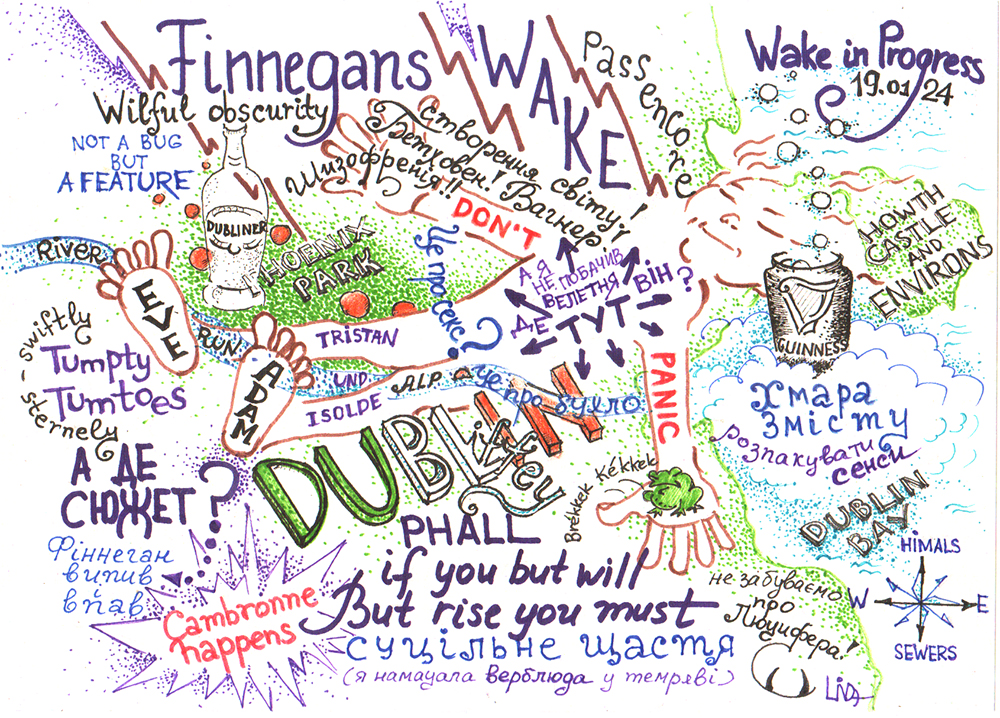 Finnegans
WAKE
Passencore
Wake in Progress
19.01.24
Wilful obscurity
NOT A BUG
BUT
A FEATURE
Створення світу!
Бетховен! Вагнер!
Шизофренія!!
DUBLINER
PHOENIX
PARK
DON'T
PANIC
Це про секс?
Це про бухло
А Я
НЕ ПОБАЧИВ
ВЕЛЕТНЯ
ДЕ
ТУТ
ВІН?
HOWTH
CASTLE
AND
ENVIRONS
GUINNESS
River
RUN
EVE
ADAM
swiftly
- sternely
Tumpty
Tumtoes
TRISTAN
UND
ALP
ISOLDE
DUBLIN
Liffey
Brékkek Kékkek
Хмара
змісту
розпакувати
сенси
DUBLIN
BAY
HIMALS
W
E
SEWERS
А ДЕ
СЮЖЕТ?
Фіннеган
випив
впав
Cambronne
happens
PHALL
if you but will
But rise you must
суцільне щастя
(я намацала верблюда у темряві)
не забуваємо
про
Люцифера!
LiDA